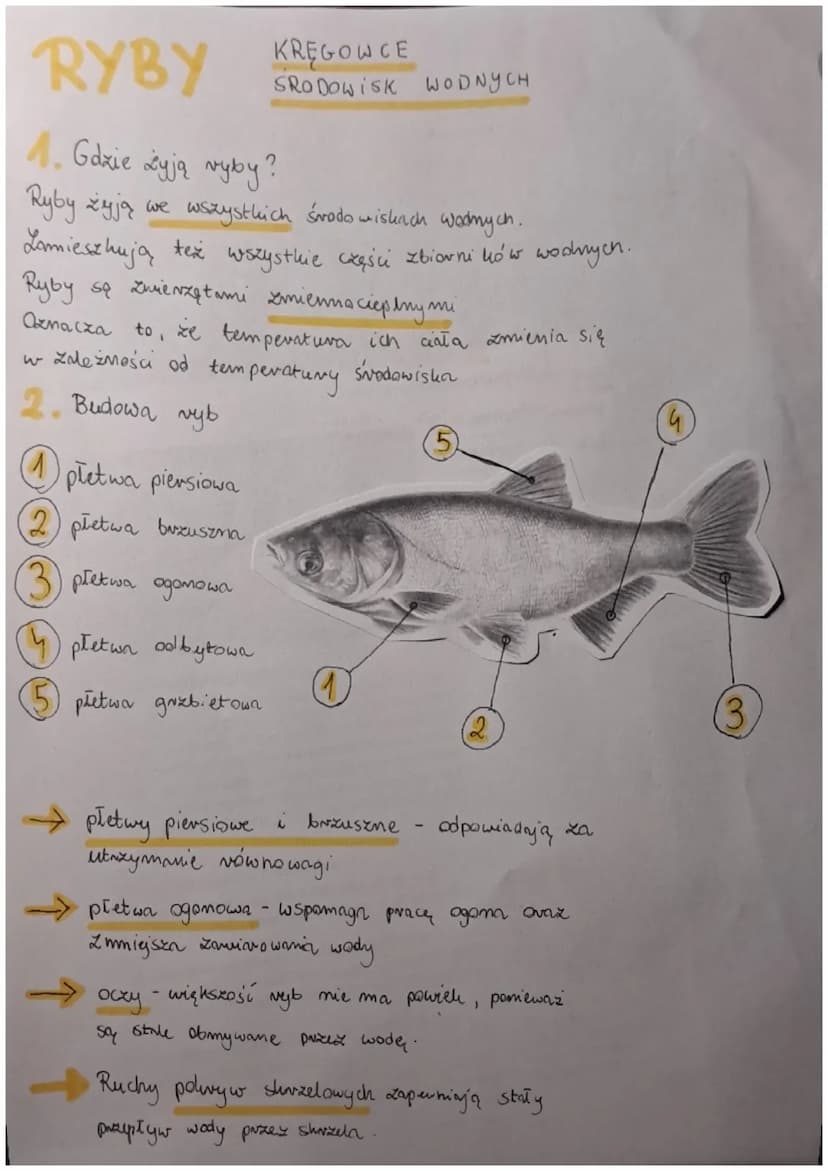 RYBY
KRĘGOWCE
ŚRODOWISK WODNYCH
1. Gdzie żyją ryby?
Ryby żyją we wszystkich środowiskach wodnych.
Zamieszkują też wszystkie części zbiorników wodnych.
Ryby są zwierzętami zmiennocieplnymi
Oznacza to, że temperatura ich ciała zmienia się
w zależności od temperatury środowiska
2. Budowa ryb
1 płetwa piersiowa
2 płetwa brzuszna
3 płetwa ogonowa
4 płetwa odbytowa
5 płetwa grzbietowa
5
4
1
2
3
→ płetwy piersiowe i brzuszne - odpowiadają za
utrzymanie równowagi
→ płetwa ogonowa - wspomaga pracę ogona oraz
zmniejsza zawirowania wody
→ oczy - większość ryb nie ma powiek, ponieważ
są stale obmywane przez wodę.
→ Ruchy pokryw skrzelowych zapewniają stały
przepływ wody przez skrzela.